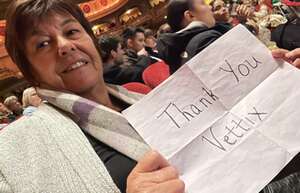 Thank You
Vettix